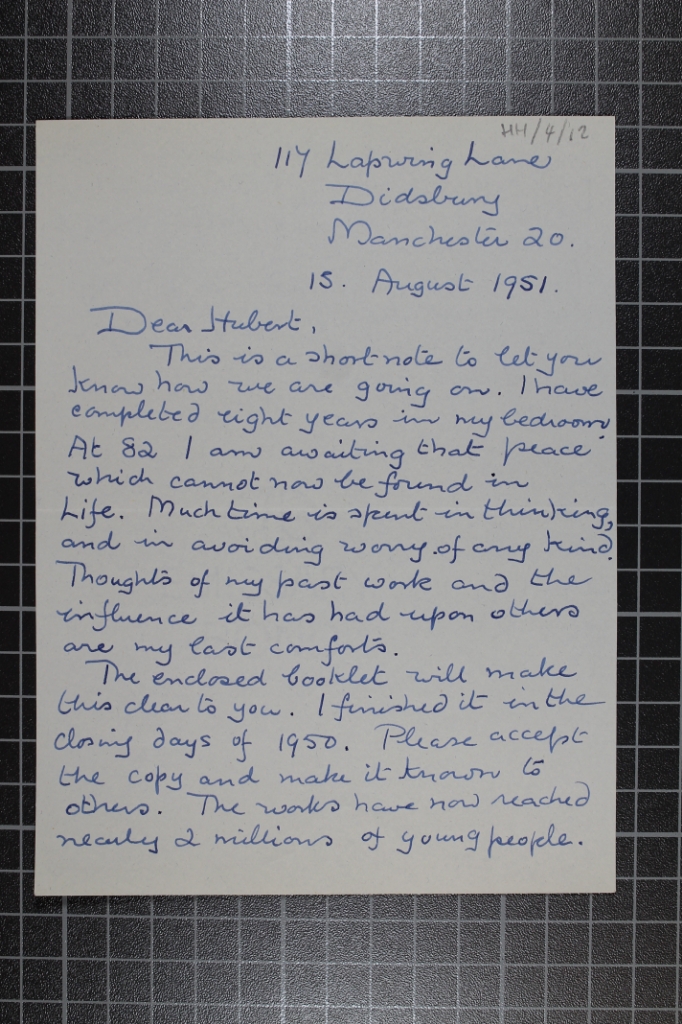 HH/4/12
117 Lapwing Lane
Didsbury
Manchester 20.
15. August 1951.
Dear Hubert,
This is a short note to let you
know how we are going on. I have
completed eight years in my bedroom.
At 82 I am awaiting that peace
which cannot now be found in
Life. Much time is spent in thinking,
and in avoiding worry of any kind.
Thoughts of my past work and the
influence it has had upon others
are my last comforts.
The enclosed booklet will make
this clear to you. I finished it in the
closing days of 1950. Please accept
the copy and make it known to
others. The works have now reached
nearly 2 millions of young people.